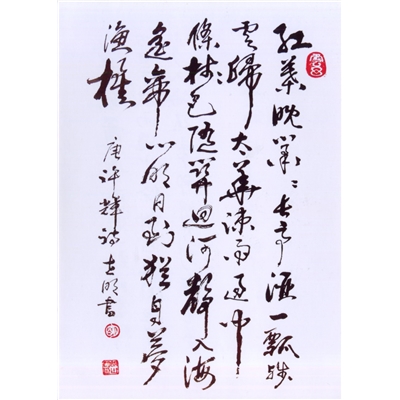 红葉晚蕭〻長亭酒一瓢殘
雲歸太華疎雨過中
條樹色隨關迥河聲入海
遙帝鄉明日到猶自夢
漁樵
唐許輝詩 明書